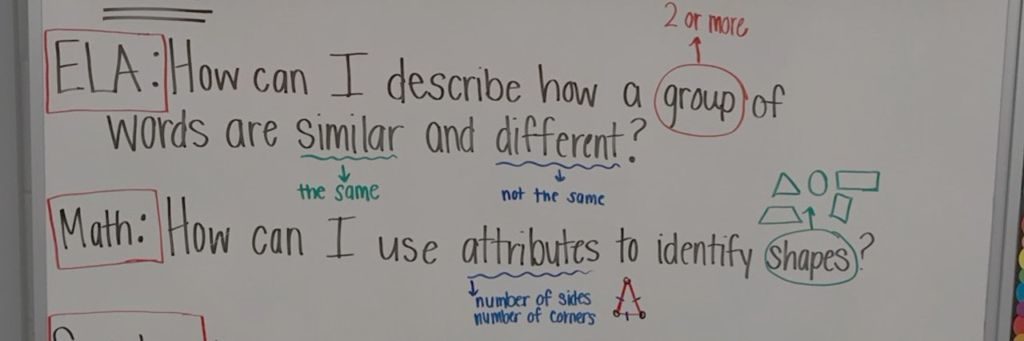 2 or more
ELA: How can I describe how a group of
words are similar and different?
the same
not the same
Math: How can I use attributes to identify shapes?
number of sides
number of corners